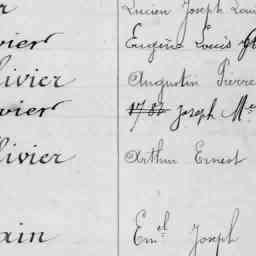 Lucien Joseph
vier Eugène Louis
livier Augustin Pierre
vier 1782 Joseph M
livier Arthur Ernest
ain Em.el Joseph